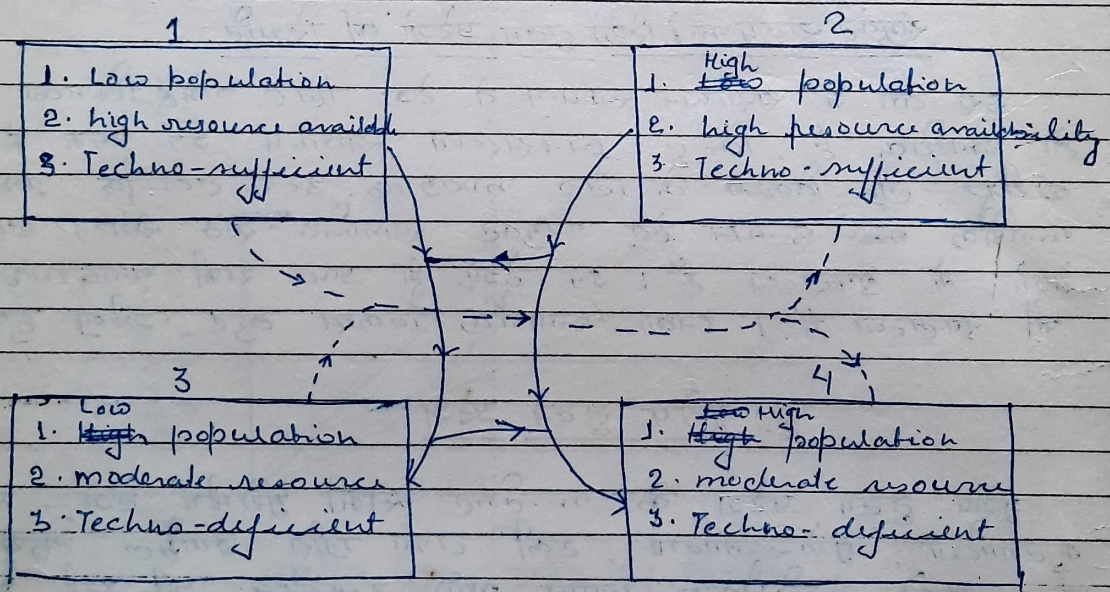 1
1. Low population
2. high resource available
3. Techno-sufficient
2
1. High population
2. high resource availability
3. Techno-sufficient
3
1. Low population
2. moderate resource
3. Techno-deficient
4
1. High population
2. moderate resource
3. Techno-deficient